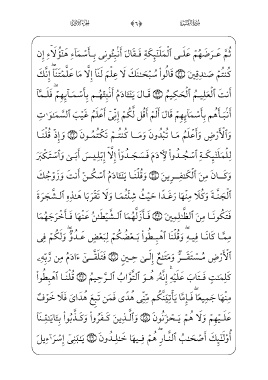 سورة البقرة ﴿٦﴾ الجزء الأول
ثُمَّ عَرَضَهُمْ عَلَى ٱلْمَلَٰٓئِكَةِ فَقَالَ أَنۢبِـُٔونِى بِأَسْمَآءِ هَٰٓؤُلَآءِ إِن
كُنتُمْ صَٰدِقِينَ ﴿٣١﴾ قَالُوا۟ سُبْحَٰنَكَ لَا عِلْمَ لَنَآ إِلَّا مَا عَلَّمْتَنَآ ۖ إِنَّكَ
أَنتَ ٱلْعَلِيمُ ٱلْحَكِيمُ ﴿٣٢﴾ قَالَ يَٰٓـَٔادَمُ أَنۢبِئْهُم بِأَسْمَآئِهِمْ ۖ فَلَمَّآ
أَنۢبَأَهُم بِأَسْمَآئِهِمْ قَالَ أَلَمْ أَقُل لَّكُمْ إِنِّىٓ أَعْلَمُ غَيْبَ ٱلسَّمَٰوَٰتِ
وَٱلْأَرْضِ وَأَعْلَمُ مَا تُبْدُونَ وَمَا كُنتُمْ تَكْتُمُونَ ﴿٣٣﴾ وَإِذْ قُلْنَا
لِلْمَلَٰٓئِكَةِ ٱسْجُدُوا۟ لِـَٔادَمَ فَسَجَدُوٓا۟ إِلَّآ إِبْلِيسَ أَبَىٰ وَٱسْتَكْبَرَ
وَكَانَ مِنَ ٱلْكَٰفِرِينَ ﴿٣٤﴾ وَقُلْنَا يَٰٓـَٔادَمُ ٱسْكُنْ أَنتَ وَزَوْجُكَ
ٱلْجَنَّةَ وَكُلَا مِنْهَا رَغَدًا حَيْثُ شِئْتُمَا وَلَا تَقْرَبَا هَٰذِهِ ٱلشَّجَرَةَ
فَتَكُونَا مِنَ ٱلظَّٰلِمِينَ ﴿٣٥﴾ فَأَزَلَّهُمَا ٱلشَّيْطَٰنُ عَنْهَا فَأَخْرَجَهُمَا
مِمَّا كَانَا فِيهِ ۖ وَقُلْنَا ٱهْبِطُوا۟ بَعْضُكُمْ لِبَعْضٍ عَدُوٌّ ۖ وَلَكُمْ فِى
ٱلْأَرْضِ مُسْتَقَرٌّ وَمَتَٰعٌ إِلَىٰ حِينٍ ﴿٣٦﴾ فَتَلَقَّىٰٓ ءَادَمُ مِن رَّبِّهِۦ
كَلِمَٰتٍ فَتَابَ عَلَيْهِ ۚ إِنَّهُۥ هُوَ ٱلتَّوَّابُ ٱلرَّحِيمُ ﴿٣٧﴾ قُلْنَا ٱهْبِطُوا۟
مِنْهَا جَمِيعًا ۖ فَإِمَّا يَأْتِيَنَّكُم مِّنِّى هُدًى فَمَن تَبِعَ هُدَاىَ فَلَا خَوْفٌ
عَلَيْهِمْ وَلَا هُمْ يَحْزَنُونَ ﴿٣٨﴾ وَٱلَّذِينَ كَفَرُوا۟ وَكَذَّبُوا۟ بِـَٔايَٰتِنَآ
أُو۟لَٰٓئِكَ أَصْحَٰبُ ٱلنَّارِ ۖ هُمْ فِيهَا خَٰلِدُونَ ﴿٣٩﴾ يَٰبَنِىٓ إِسْرَٰٓءِيلَ